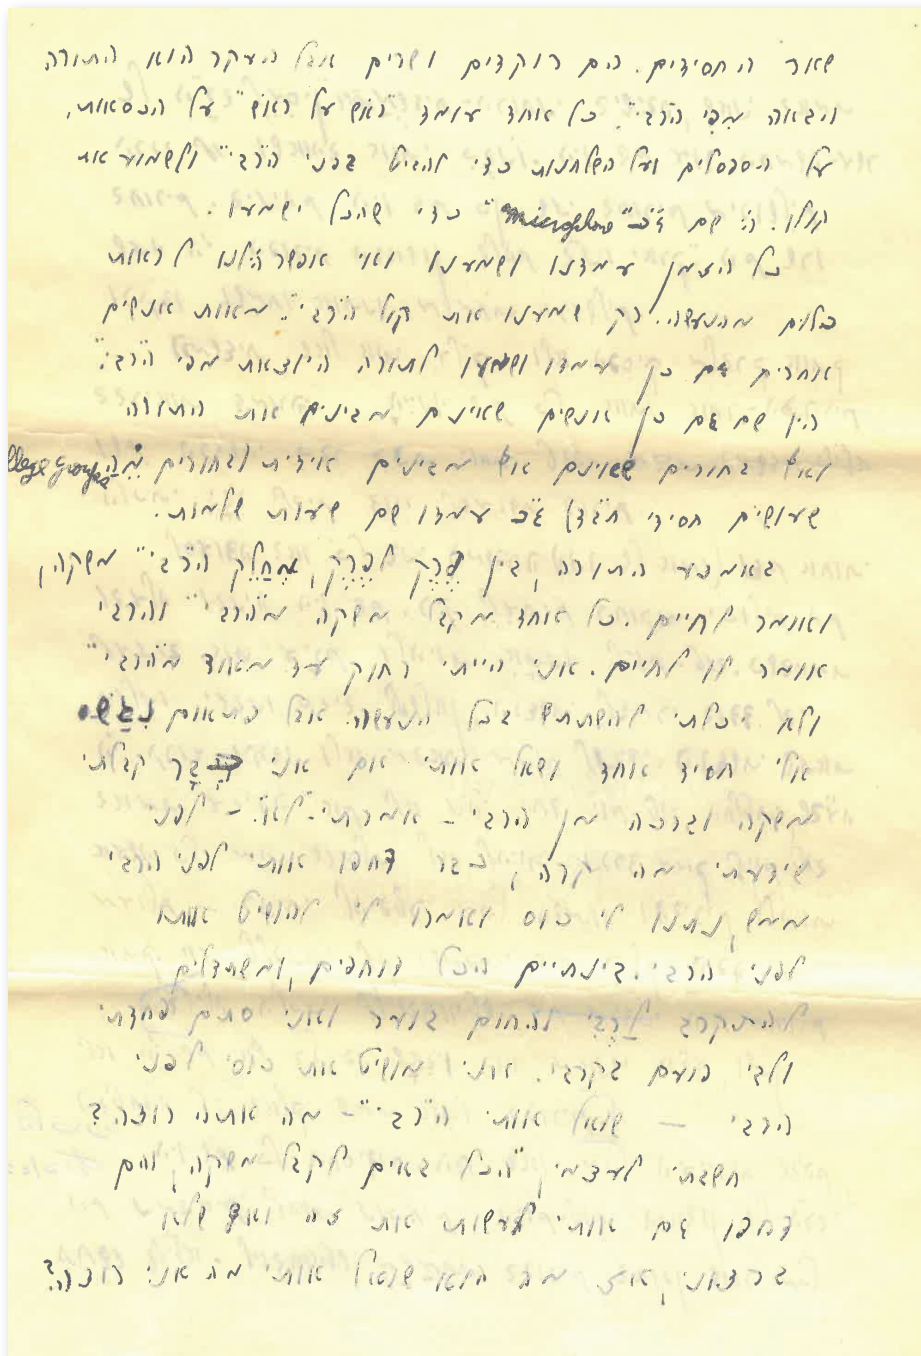 שאר החסידים. הם רוקדים ושרים אבל העקר הוא התורה
הבאה מִפִּי ה"רבי". כל אחד עומד "ראש על ראש" על הכסאות,
על הספסלים ועל השלחנות כדי להביט בפני ה"רבי" ולשמוע את
קולו. הי' שם ג"כ "microphone" כדי שהכל ישמעו.
כל הזמן עמדנו ושמענו ואי אפשר הי' לנו לראות
כלום מהנעשה. רק שמענו את קול ה"רבי". מאות אנשים
אחרים גם כן עמדו ושמעו לתורה היוצאת מפי ה"רבי".
היו שם גם כן אנשים שאינם מבינים את התורה
ואף בחורים שאינם אף מבינים אידית ובחורים מֵהַ college groups
שעושים חסידי חב"ד) ג"כ עמדו שם שעות שלמות.
באמצע התורה, בין פֶּרֶק לְפֶרֶק, מְחַלֵּק ה"רבי" משקה,
ואומר לחיים. כל אחד מקבל משקה מ"הרבי" והרבי
אומר לו לחיים. אני הייתי רחוק עד מאוד מ"הרבי"
ולא יכלתי להשתתף בכל הנעשה. אבל פתאום נִגַּשׁ
אלי חסיד אחד ושאל אותי אם אני כְּבָר קבלתי
משקה וברכה מן הרבי - אמרתי - "לא". - לפני
שידעתי מה קרה, כבר דחפו אותי לפני הרבי
ממש, נתנו לי כוס ואמרו לי להושיט אותו
לפני הרבי. בינתיים הכל דוחפים, ומשתדלים
להתקרב לָרֶבִּי והחום בוער ואני סתם פחדתי
ולבי פועם בקרבי. אני מושיט את כוסי לפני
הרבי — שואל אותי ה"רבי" - מה אתה רוצה?
חשבתי לעצמי, "הכל באים לקבל משקה, והם
דחפו גם אותי לעשות את זה ואף שלא
ברצוני, אז מה הוא שואל אותי מה אני רוצה?